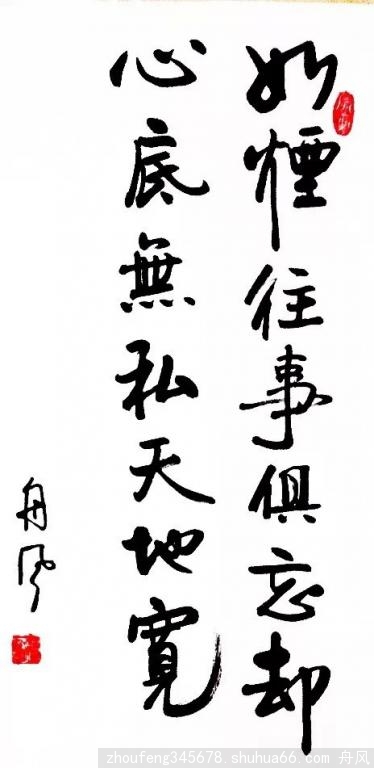 如煙往事俱忘却
心底無私天地寬
舟风
zhoufeng345678.shuhua66.com 舟风